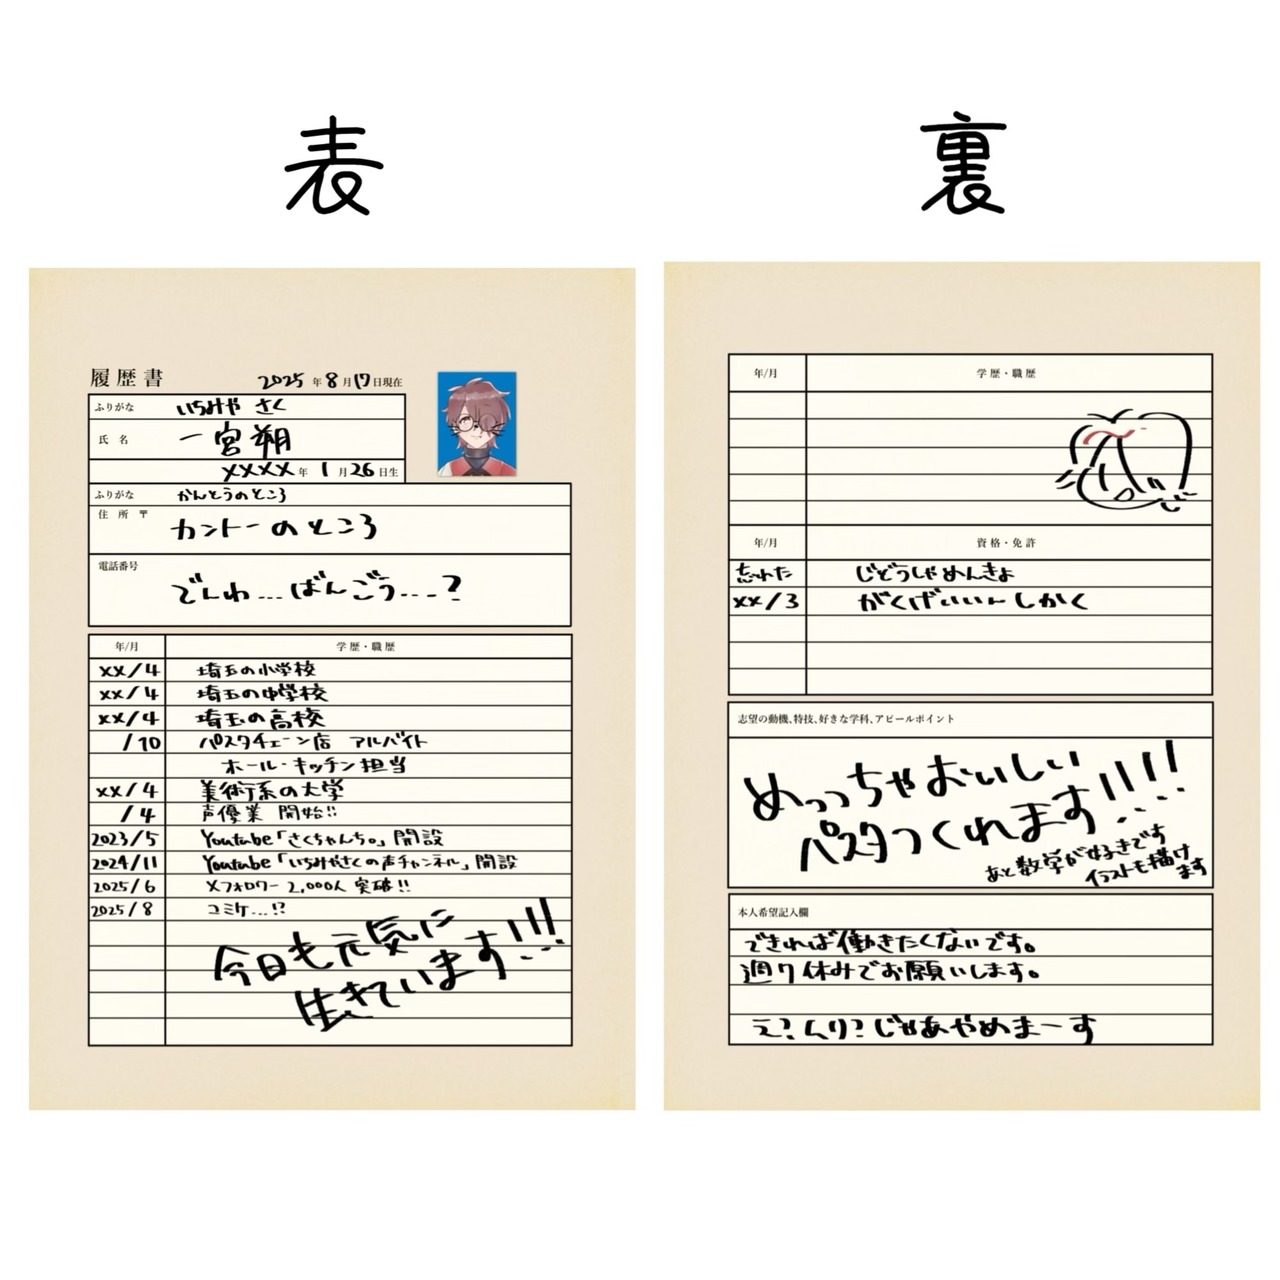 表
履歴書 2025年8月17日現在
ふりがな いちみや さく
氏名 一宮朔
xxxx年1月26日生
ふりがな かんとうのところ
住所 〒 カントーのところ
電話番号 でんわ...ばんごう...?
年/月 学歴・職歴
xx/4 埼玉の小学校
xx/4 埼玉の中学校
xx/4 埼玉の高校
/10 パスタチェーン店 アルバイト
ホール・キッチン担当
xx/4 美術系の大学
/4 声優業 開始!!
2023/5 Youtube「さくちゃんち。」開設
2024/11 Youtube「いちみやさくの声チャンネル」開設
2025/6 Xフォロワー 2,000人 突破!!
2025/8 コミケ...!?
今日も元気に
生きています!!!
裏
年/月 学歴・職歴
年/月 資格・免許
忘れた じどうしゃめんきょ
xx/3 がくげいいん しかく
志望の動機、特技、好きな学科、アピールポイント
めっっちゃおいしい
パスタつくれます!!!!
あと数学が好きです
イラストも描け
ます
本人希望記入欄
できれば働きたくないです。
週7休みでお願いします。
え?ムリ?じゃあやめまーす